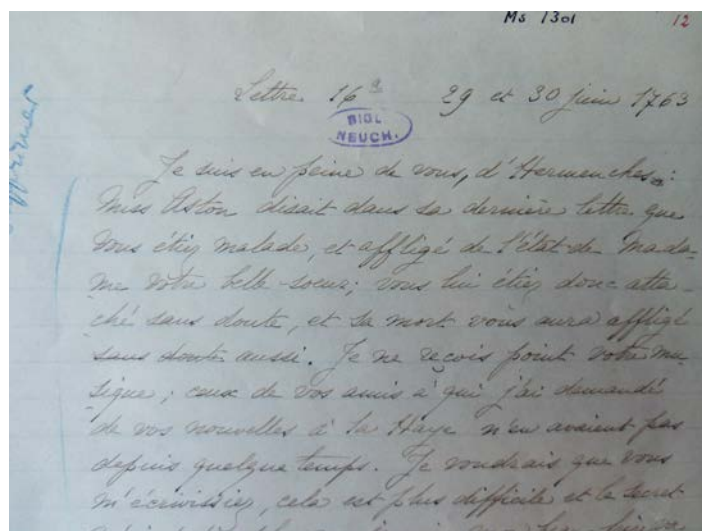 Ms 1301 12
Lettre 16e 29 et 30 juin 1763
BIBL.
NEUCH.
Supprimer
Je suis en peine de vous, d'Hermenches :
Miss Aston disait dans sa dernière lettre que
vous étiez malade, et affligé de l'état de Mada-
me votre belle-soeur; vous lui étiez donc atta-
ché sans doute, et sa mort vous aura affligé
sans doute aussi. Je ne reçois point votre mu-
sique; ceux de vos amis à qui j'ai demandé
de vos nouvelles à la Haye n'en avaient pas
depuis quelque temps. Je voudrais que vous
m'écrivissiez, cela est plus difficile et le secret